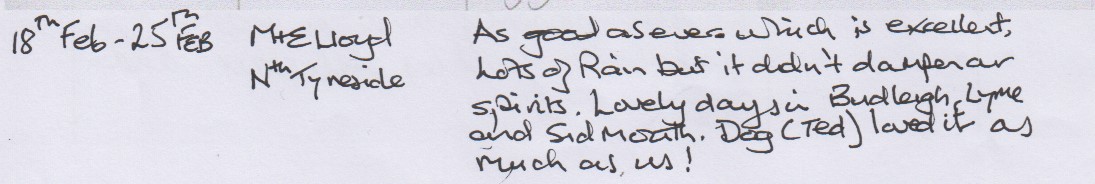 18th Feb - 25th FEB
M+E Lloyd
Nth Tyneside
As good as ever which is excellent,
Lots of Rain but it didn't dampen our
spirits. Lovely days in Budleigh, Lyme
and Sidmouth. Dog (Ted) loved it as
much as us!